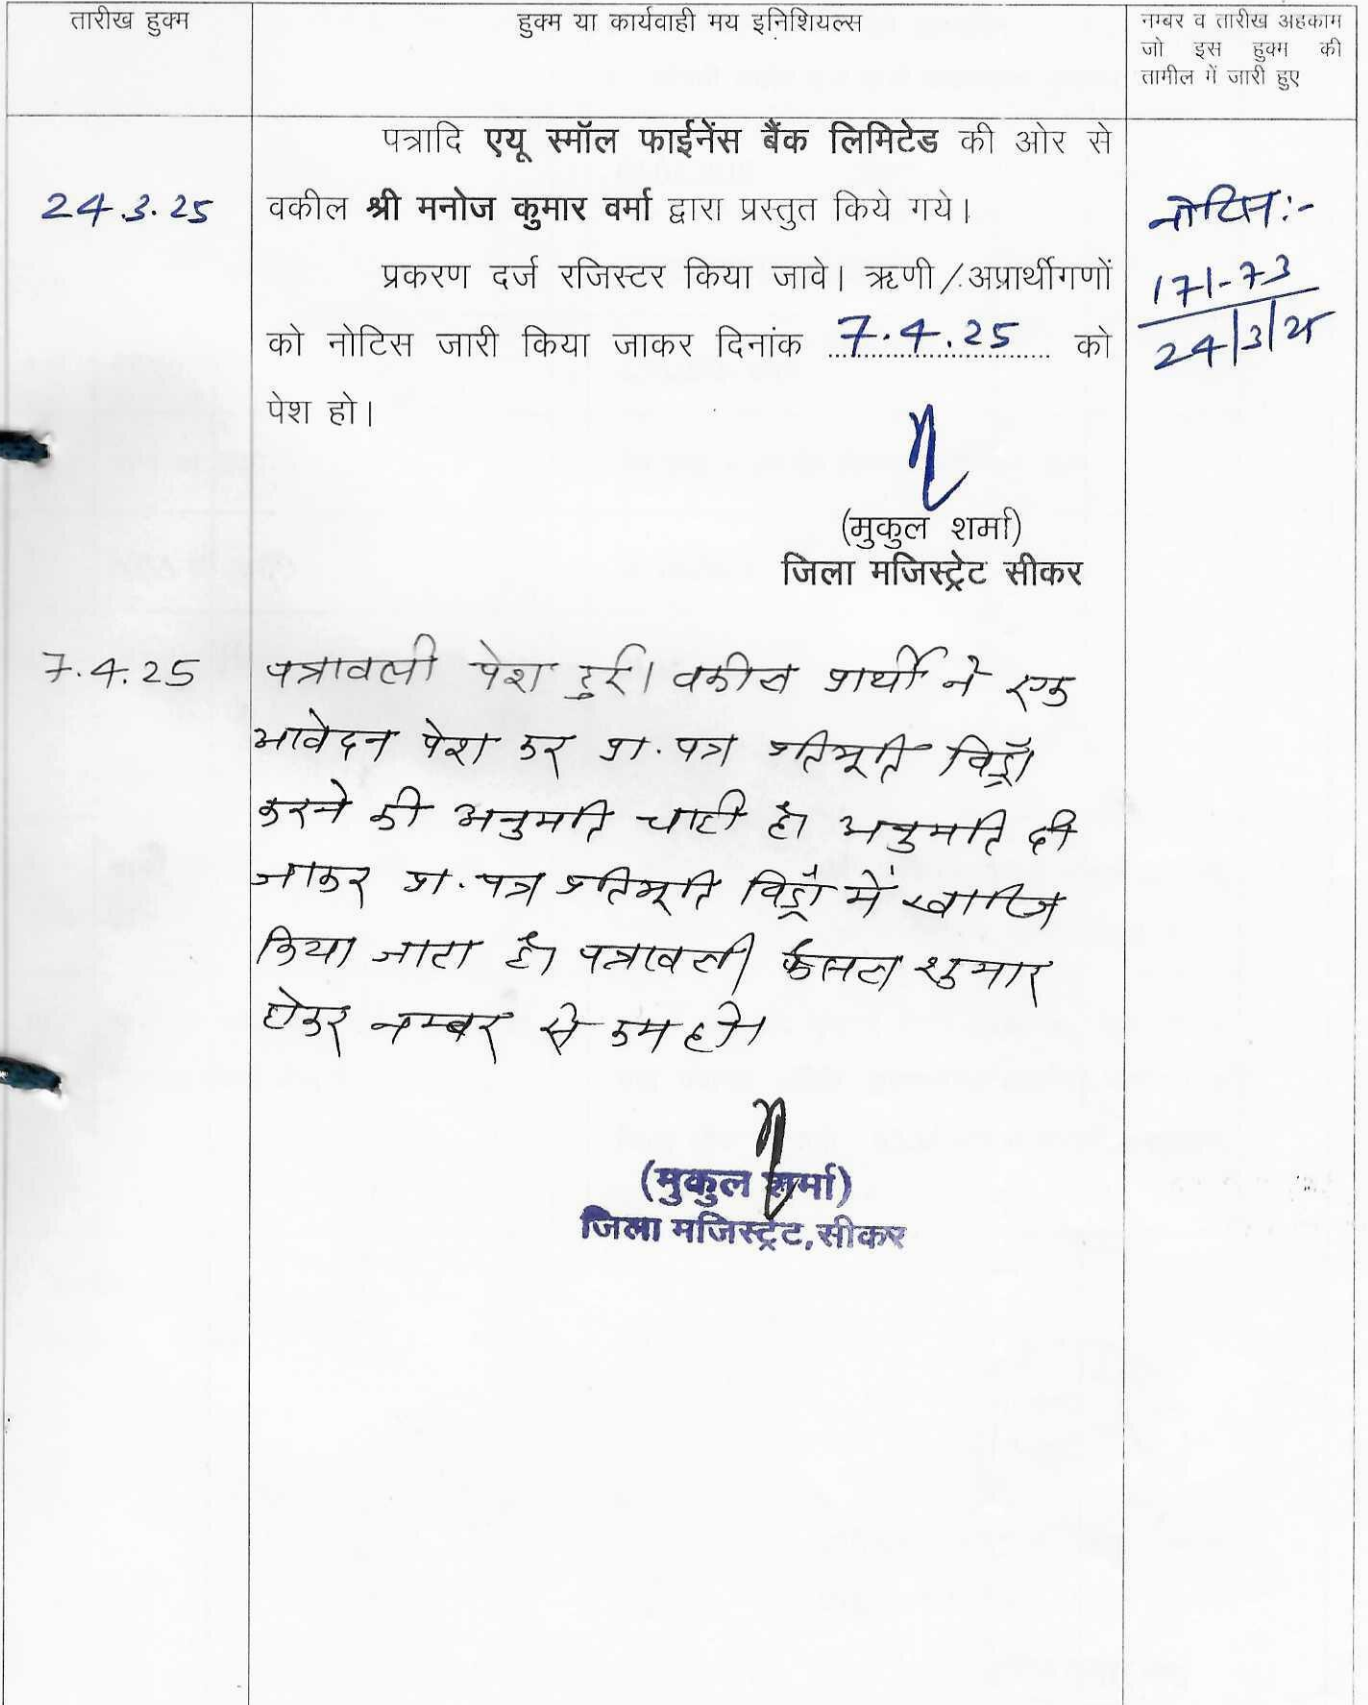 तारीख हुक्म
हुक्म या कार्यवाही मय इनिशियल्स
नम्बर व तारीख अहकाम
जो इस हुक्म की
तामील में जारी हुए
24.3.25
पत्रादि एयू स्मॉल फाईनेंस बैंक लिमिटेड की ओर से
वकील श्री मनोज कुमार वर्मा द्वारा प्रस्तुत किये गये।
प्रकरण दर्ज रजिस्टर किया जावे। ऋणी/अप्रार्थीगणों
को नोटिस जारी किया जाकर दिनांक 7.4.25 को
पेश हो।
नोटिस:-
171-73
24/3/25
(मुकुल शर्मा)
जिला मजिस्ट्रेट सीकर
7.4.25
पत्रावली पेश हुई। वकील प्रार्थी ने एक
आवेदन पेश कर प्रा.पत्र प्रतिभूति विड्रॉ
करने की अनुमति चाही है। अनुमति दी
जाकर प्रा.पत्र प्रतिभूति विड्रॉ में खारिज
किया जाता है। पत्रावली फैसल शुमार
होकर नम्बर से कम हो।
(मुकुल शर्मा)
जिला मजिस्ट्रेट, सीकर